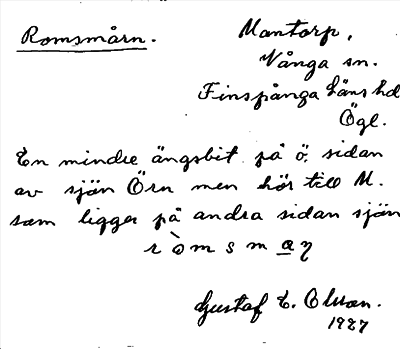 Romsmårn.
Mantorp,
Vånga sn.
Finspånga läns hd
Ögl.
En mindre ängsbit på ö. sidan
av sjön Örn men hör till M.
som ligger på andra sidan sjön
r ò m s m a ŋ
Gustaf E. Olsson.
1927